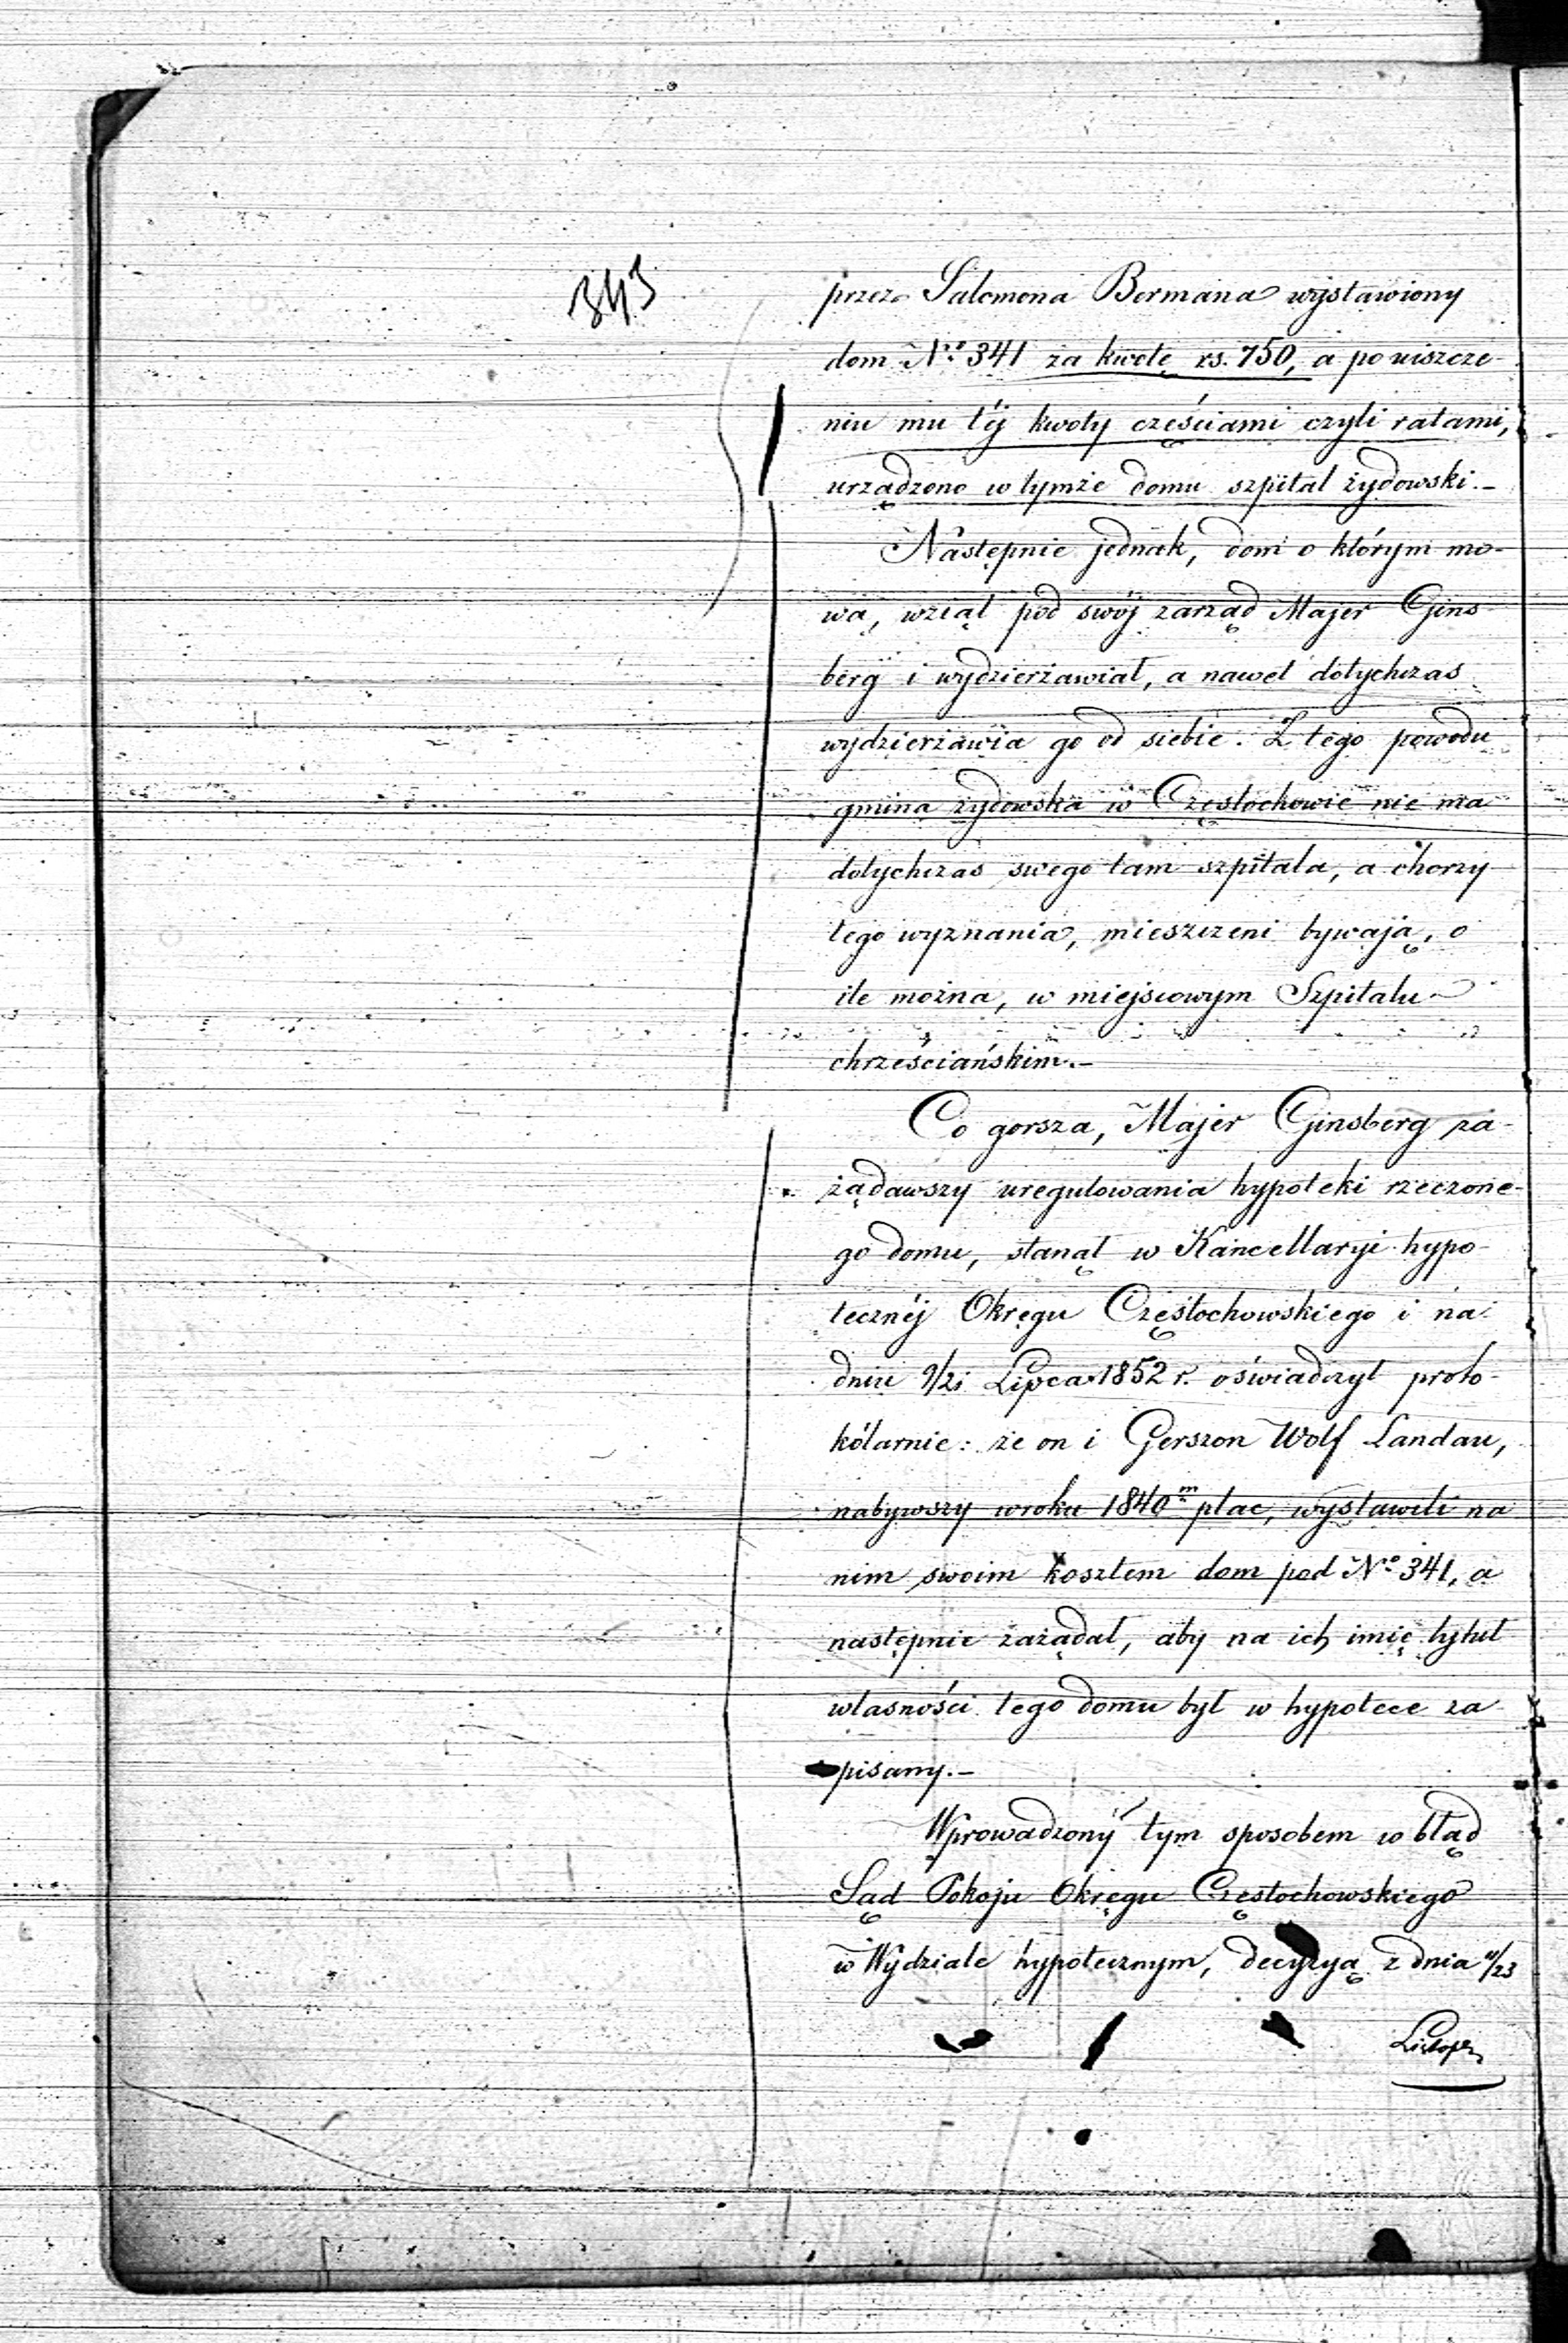 343
przez Salomona Bermana wystawiony
dom Nro 341 za kwotę rs. 750, a po uiszcze-
niu mu téj kwoty częściami czyli ratami,
urządzono w tymże domu szpital żydowski.-
Następnie jednak, dom o którym mo-
wa, wziął pod swój zarząd Majer Gins
berg i wydzierżawiał, a nawet dotychczas
wydzierżawia go od siebie. Z tego powodu
gmina żydowska w Częstochowie nie ma
dotychczas swego tam szpitala, a chorzy
tego wyznania, mieszczeni bywają, o
ile można, w miejscowym Szpitalu
chrześciańskim.-
Co gorsza, Majer Ginsberg za-
żądawszy uregulowania hypoteki rzeczone-
go domu, stanął w Kancellaryi hypo-
tecznéj Okręgu Częstochowskiego i na
dniu 9/21 Lipca 1852 r. oświadczył proto-
kólarnie: że on i Gerszon Wolf Landau,
nabywszy w roku 1840m plac, wystawili na
nim swoim kosztem dom pod No 341, a
następnie zażądał, aby na ich imię tytuł
własności tego domu był w hypotece za
pisany.-
Wprowadzony tym sposobem w błąd
Sąd Pokoju Okręgu Częstochowskiego
w Wydziale hypotecznym, decyzyą z dnia 11/23